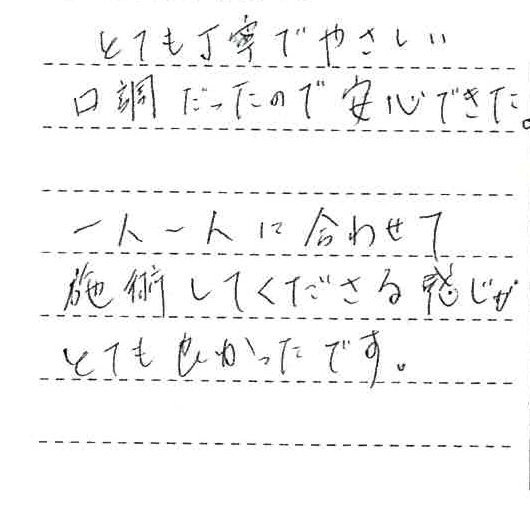 とても丁寧でやさしい
口調だったので安心できた。
一人一人に合わせて
施術してくださる感じが
とても良かったです。